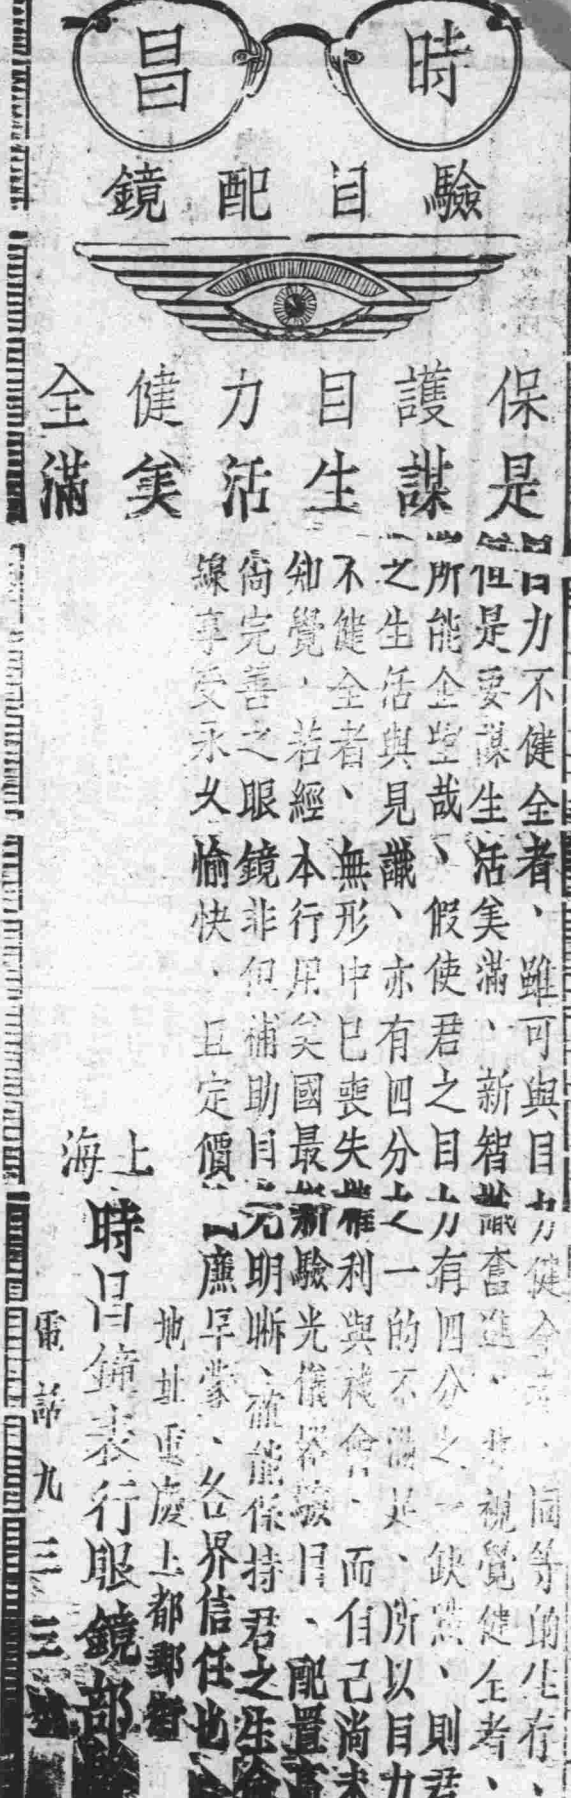 時昌
驗目配鏡
保護目力健全
是謀生活美滿
目力不健全者、雖可與目力健全者、同等的生存、
但是要謀生活美滿、新智識奮進、非視覺健全者、
所能企望哉、假使君之目力有四分之一缺點、則君
之生活與見識、亦有四分之一的不滿足、所以目力
不健全者、無形中已喪失權利與機會、而自己尚未
知覺、若經本行用美國最新驗光儀器驗目、配置高
尚完善之眼鏡非但補助目光明晰、確能保持君之生命
線享受永久愉快、且定價 廉早蒙、各界信任也
地址重慶上都郵街
上海時昌鐘表行眼鏡部
電話九三三號